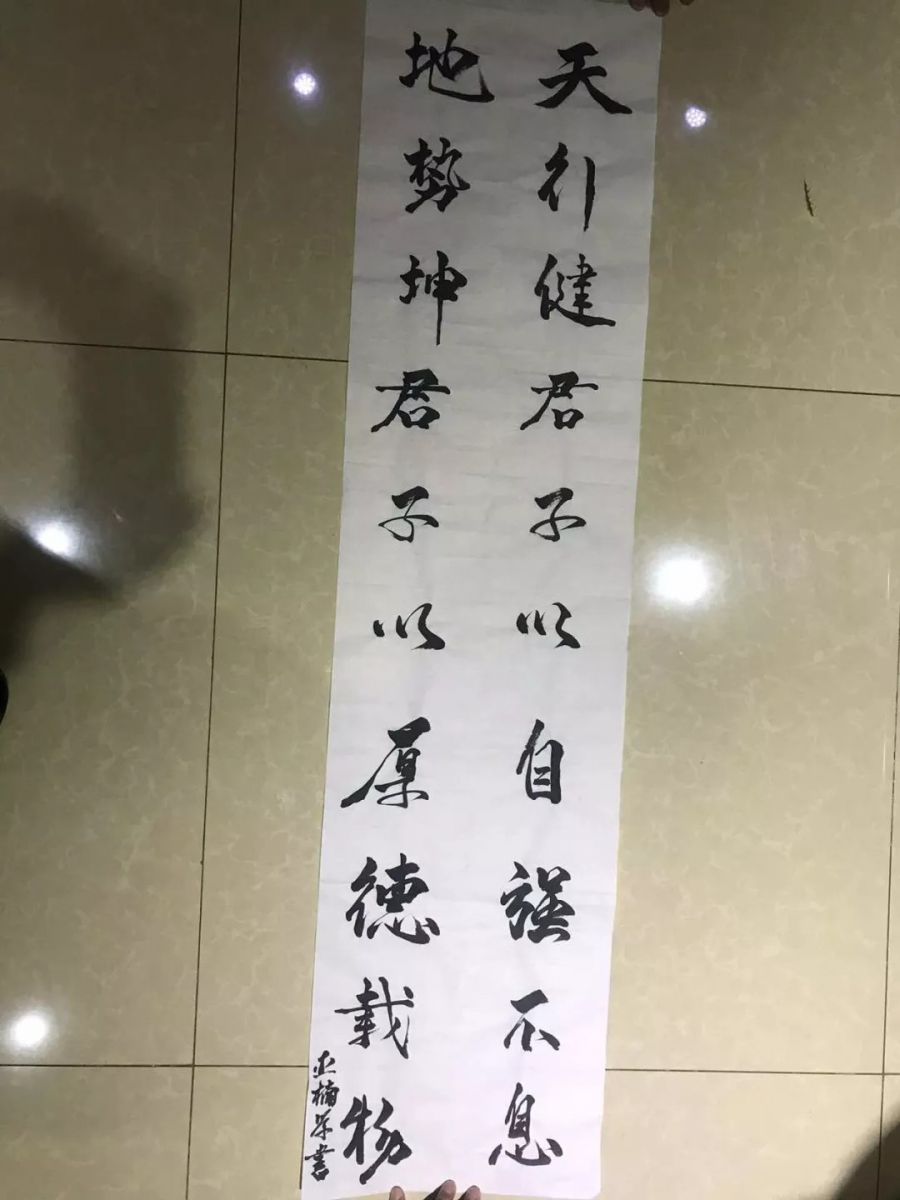 天行健君子以自强不息
地势坤君子以厚德载物
正楠草书